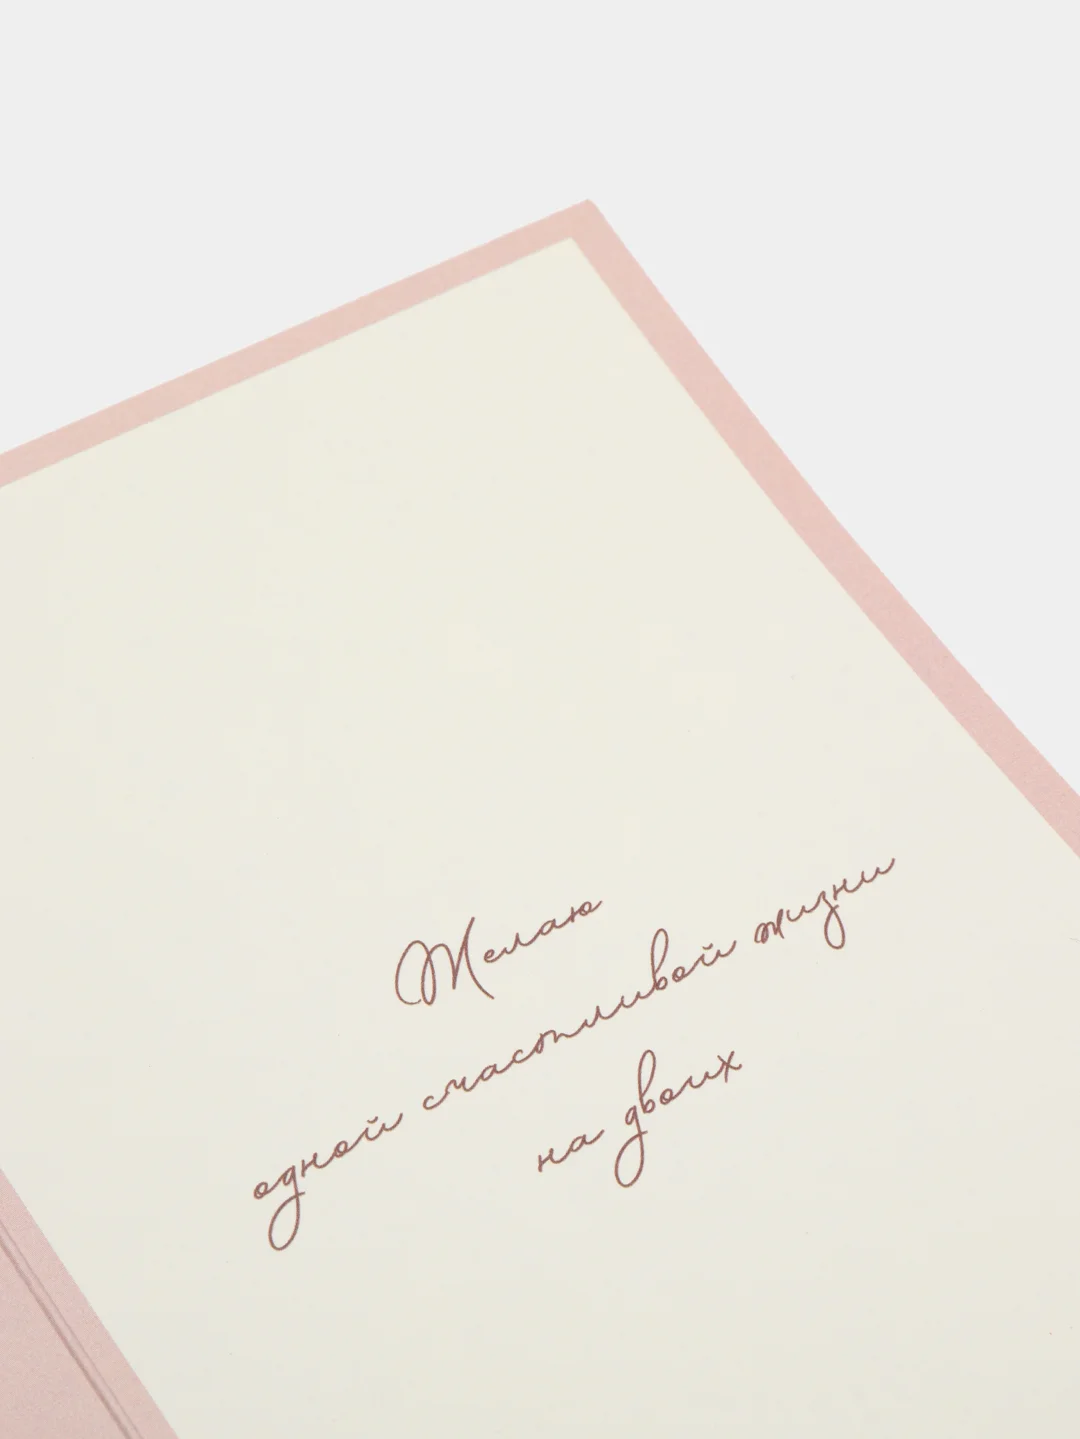 Желаю
одной счастливой жизни
на двоих